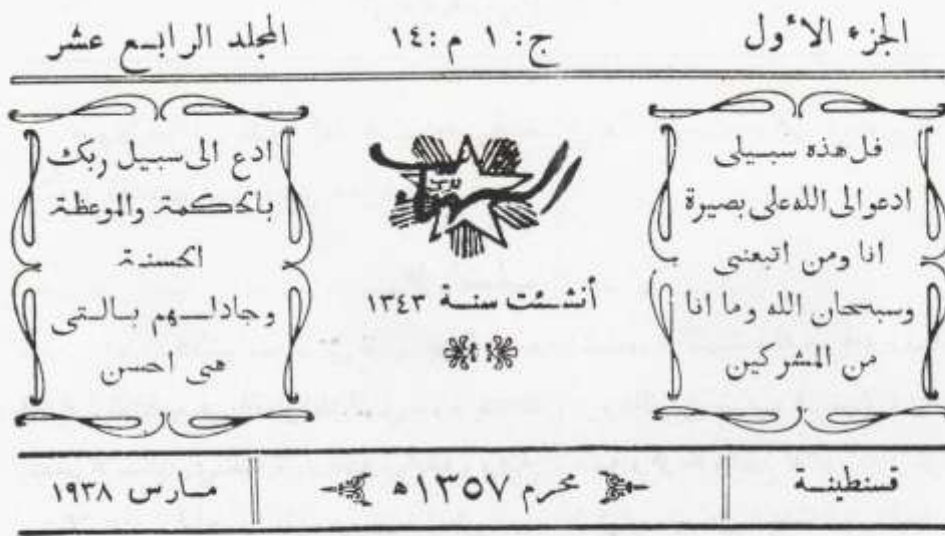 الجزء الأول
ج: ١ م: ١٤
المجلد الرابع عشر
قل هذه سبيلى
ادعو الى الله على بصيرة
انا ومن اتبعنى
وسبحان الله وما انا
من المشركين
أنشئت سنة ١٣٤٣
ادع الى سبيل ربك
بالحكمة والموعظة
الحسنة
وجادلهم بالتى
هى احسن
قسنطينة
محرم ١٣٥٧ه
مارس ١٩٣٨